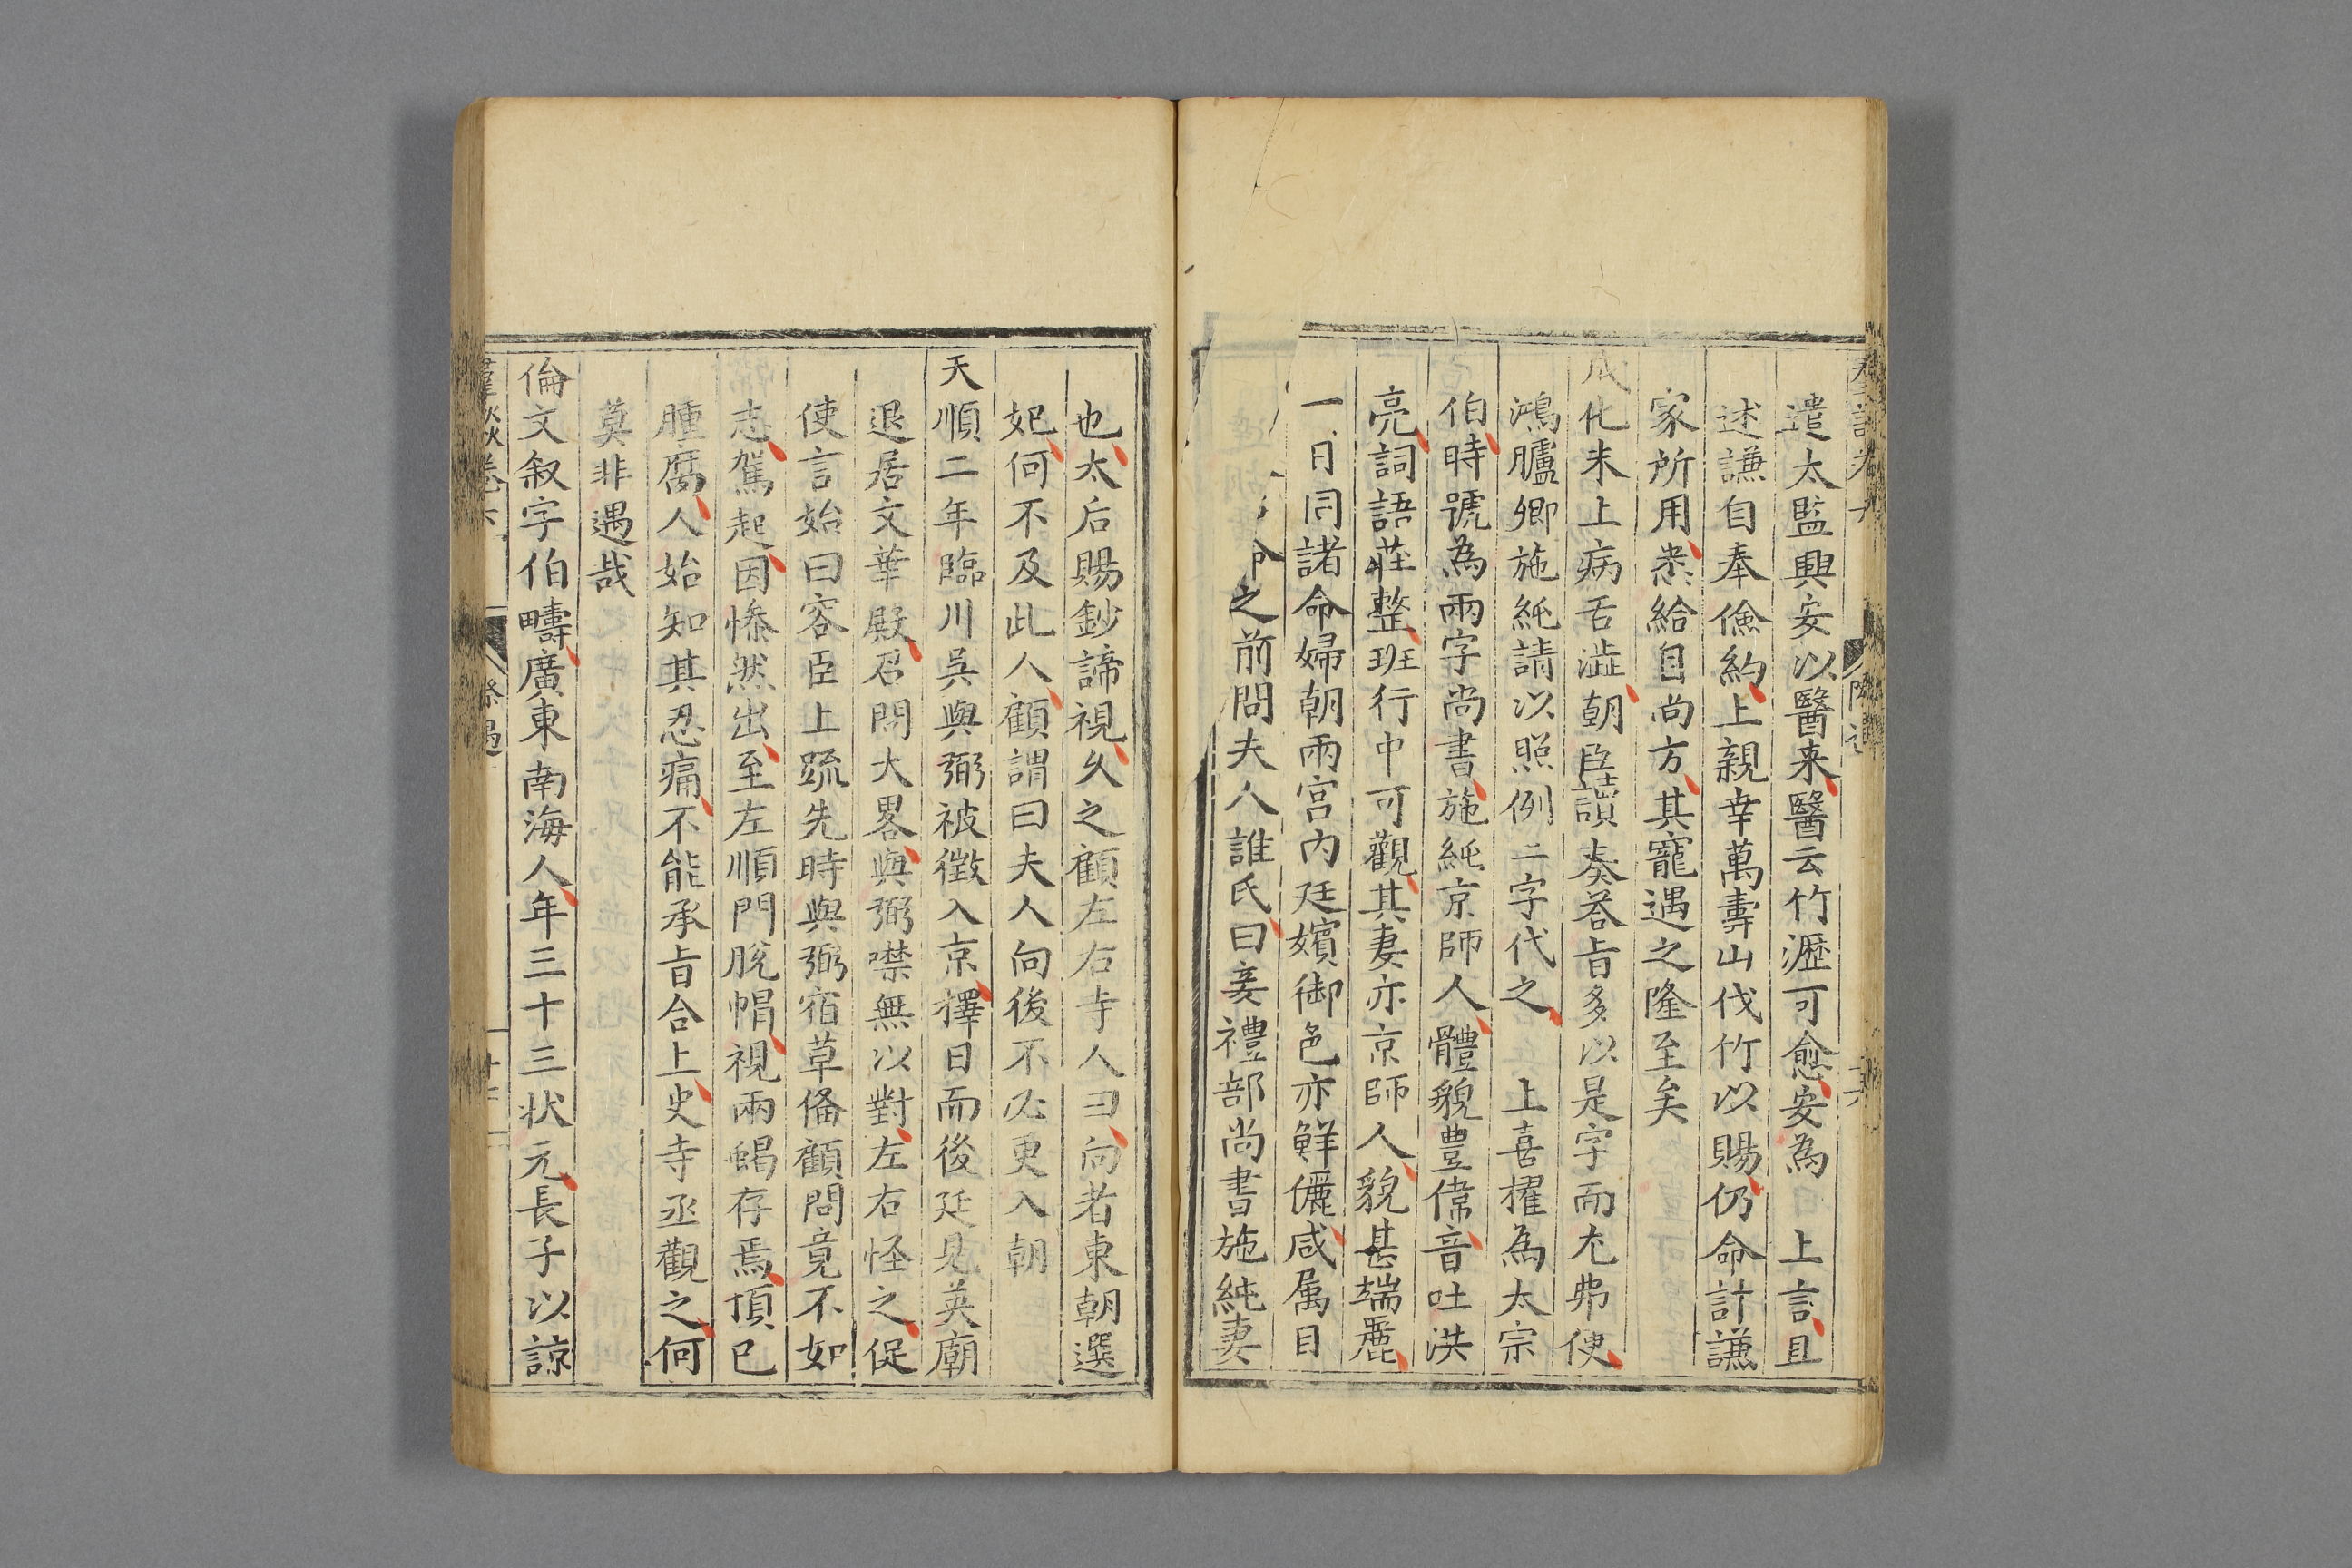 遣太監興安以醫来醫云竹瀝可愈安為 上言且
述謙自奉儉約上親幸萬壽山伐竹以賜仍命計謙
家所用悉給自尚方其寵遇之隆至矣
成化末上病舌澁朝臣讀奏荅旨多以是字而尤弗便
鴻臚卿施純請以照例二字代之 上喜擢為太宗
伯時號為兩字尚書施純京師人體貌豊偉音吐洪
亮詞語莊整班行中可觀其妻亦京師人貌甚端麗
一日同諸命婦朝兩宮內廷嬪御色亦鮮儷咸属目
命之前問夫人誰氏曰妾禮部尚書施純妻
也太后賜鈔諦視久之顧左右寺人曰向者東朝選
妃何不及此人顧謂曰夫人向後不必更入朝
天順二年臨川吳與弼被徵入京擇日而後廷見英廟
退居文華殿召問大畧與弼噤無以對左右怪之促
使言始曰容臣上䟽先時與弼宿草俻顧問竟不如
志駕起因慘然出至左順門脫帽視兩蝎存焉頂已
腫腐人始知其忍痛不能承旨合上史寺丞觀之何
莫非遇哉
倫文叙字伯疇廣東南海人年三十三狀元長子以諒